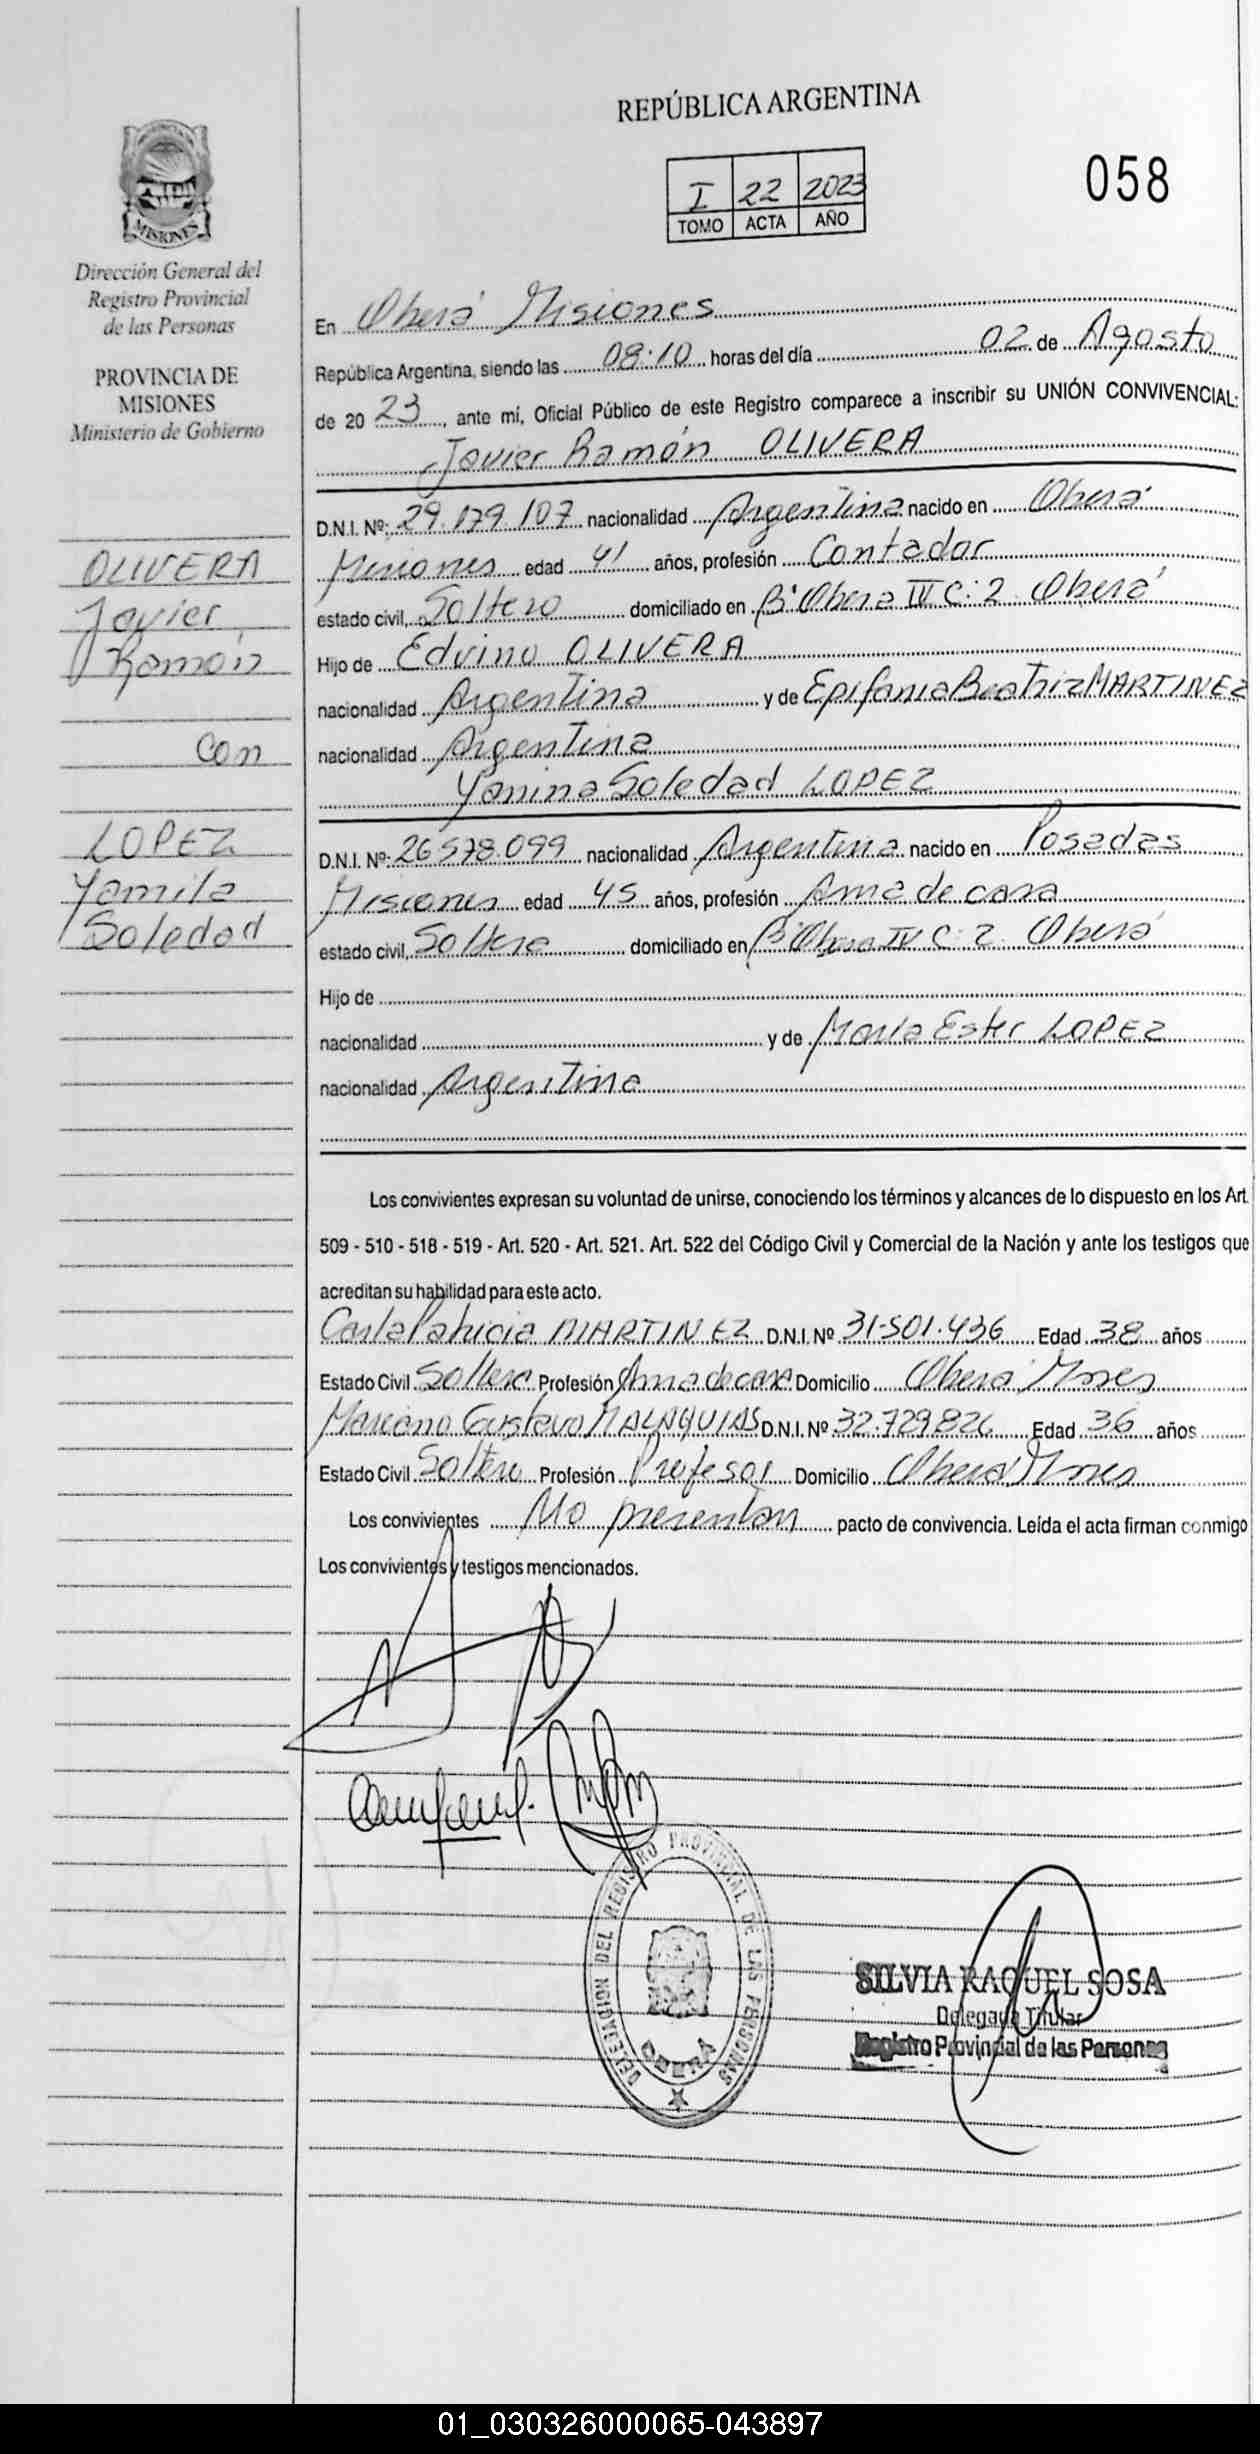 REPÚBLICA ARGENTINA
I 22 2023
TOMO ACTA AÑO
058
MISIONES
Dirección General del
Registro Provincial
de las Personas
PROVINCIA DE
MISIONES
Ministerio de Gobierno
OLIVERA
Javier
Ramón
con
LOPEZ
Yamila
Soledad
En Oberá Misiones
República Argentina, siendo las 08:10 horas del día 02 de Agosto
de 20 23, ante mí, Oficial Público de este Registro comparece a inscribir su UNIÓN CONVIVENCIAL:
Javier Ramón OLIVERA
D.N.I. Nº: 29.179.107 nacionalidad Argentina nacido en Oberá
Misiones edad 41 años, profesión Contador
estado civil, Soltero domiciliado en Bº Oberá IV C: 2 Oberá
Hijo de Edvino OLIVERA
nacionalidad Argentina y de Epifania Beatriz MARTINEZ
nacionalidad Argentina
Yanina Soledad LOPEZ
D.N.I. Nº: 26.578.099 nacionalidad Argentina nacido en Posadas
Misiones edad 45 años, profesión Ama de casa
estado civil, Soltera domiciliado en Bº Oberá IV C: 2 Oberá
Hijo de
nacionalidad y de María Ester LOPEZ
nacionalidad Argentina
Los convivientes expresan su voluntad de unirse, conociendo los términos y alcances de lo dispuesto en los Art.
509 - 510 - 518 - 519 - Art. 520 - Art. 521. Art. 522 del Código Civil y Comercial de la Nación y ante los testigos que
acreditan su habilidad para este acto.
Carla Patricia MARTINEZ D.N.I. Nº 31.501.436 Edad 38 años
Estado Civil Soltera Profesión Ama de casa Domicilio Oberá Mnes
Mariano Gustavo MALAQUIAS D.N.I. Nº 32.729.826 Edad 36 años
Estado Civil Soltero Profesión Profesor Domicilio Oberá Mnes
Los convivientes No presentan pacto de convivencia. Leída el acta firman conmigo
Los convivientes y testigos mencionados.
DELEGACION DEL REGISTRO PROVINCIAL DE LAS PERSONAS
OBERÁ
SILVIA RAQUEL SOSA
Delegada Titular
Registro Provincial de las Personas
01_030326000065-043897